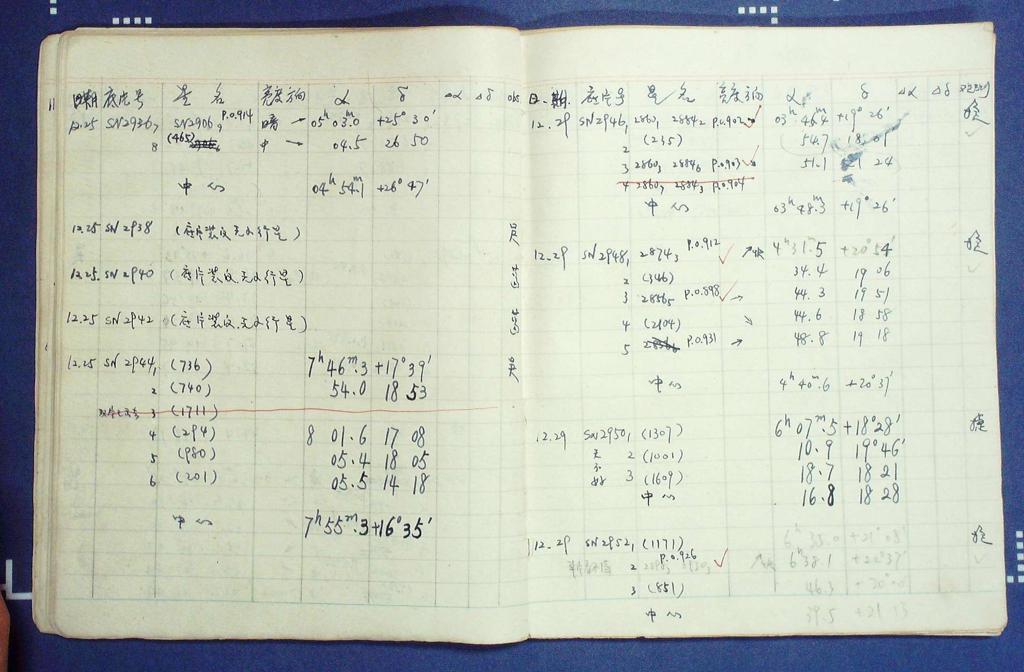 11
日期 底片号 星名 亮度方向 α δ Δα Δδ obs
12.25 SN2936, SN2906, P.0.914 暗 → 05h 03.0m +25° 30′
8 (465) 中 → 04.5 26 50
中心 04h 54.1m +26° 47′
12.25 SN 2938
12.25 SN 2940
12.25 SN 2942
12.25 SN 2944, (736) 7h 46m.3 +17° 39′
2 (740) 54.0 18 53
3 (1711)
4 (294) 8 01.6 17 08
5 (980) 05.4 18 05
6 (201) 05.5 14 18
中心 7h 55m.3 +16° 35′
日期 底片号 星名 亮度方向 α δ Δα Δδ
12.29 SN2946, 2860, 28842 P.0.902 03h 46.4m +19° 26′
2 (235) 54.7 18 01
3 2860, 28846 P.0.903 51.1 21 24
4 2860, 28843 P.0.904
中心 03h 48.3m +19° 26′
12.29 SN2948, 28743 P.0.912 4h 31m.5 +20° 54′
2 (346) 34.4 19 06
3 28565 P.0.898 → 44.3 19 51
4 (2104) 44.6 18 58
5 P.0.931 → 48.8 19 18
中心 4h 40m.6 +20° 37′
12.29 SN2950, (1307) 6h 07m.5 +18° 28′
2 (1001) 10.9 19° 46′
3 (1609) 18.7 18 21
中心 16.8 18 28
12.29 SN2952, (1171) 6h 33.0 +21° 03′
2 P.0.926 6h 38.1 +20° 37′
3 (851) 46.3
中心 39.5 +21 13